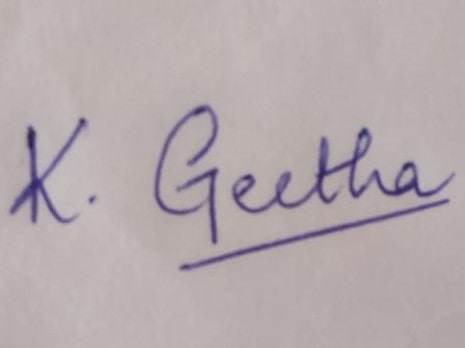 K. Geetha